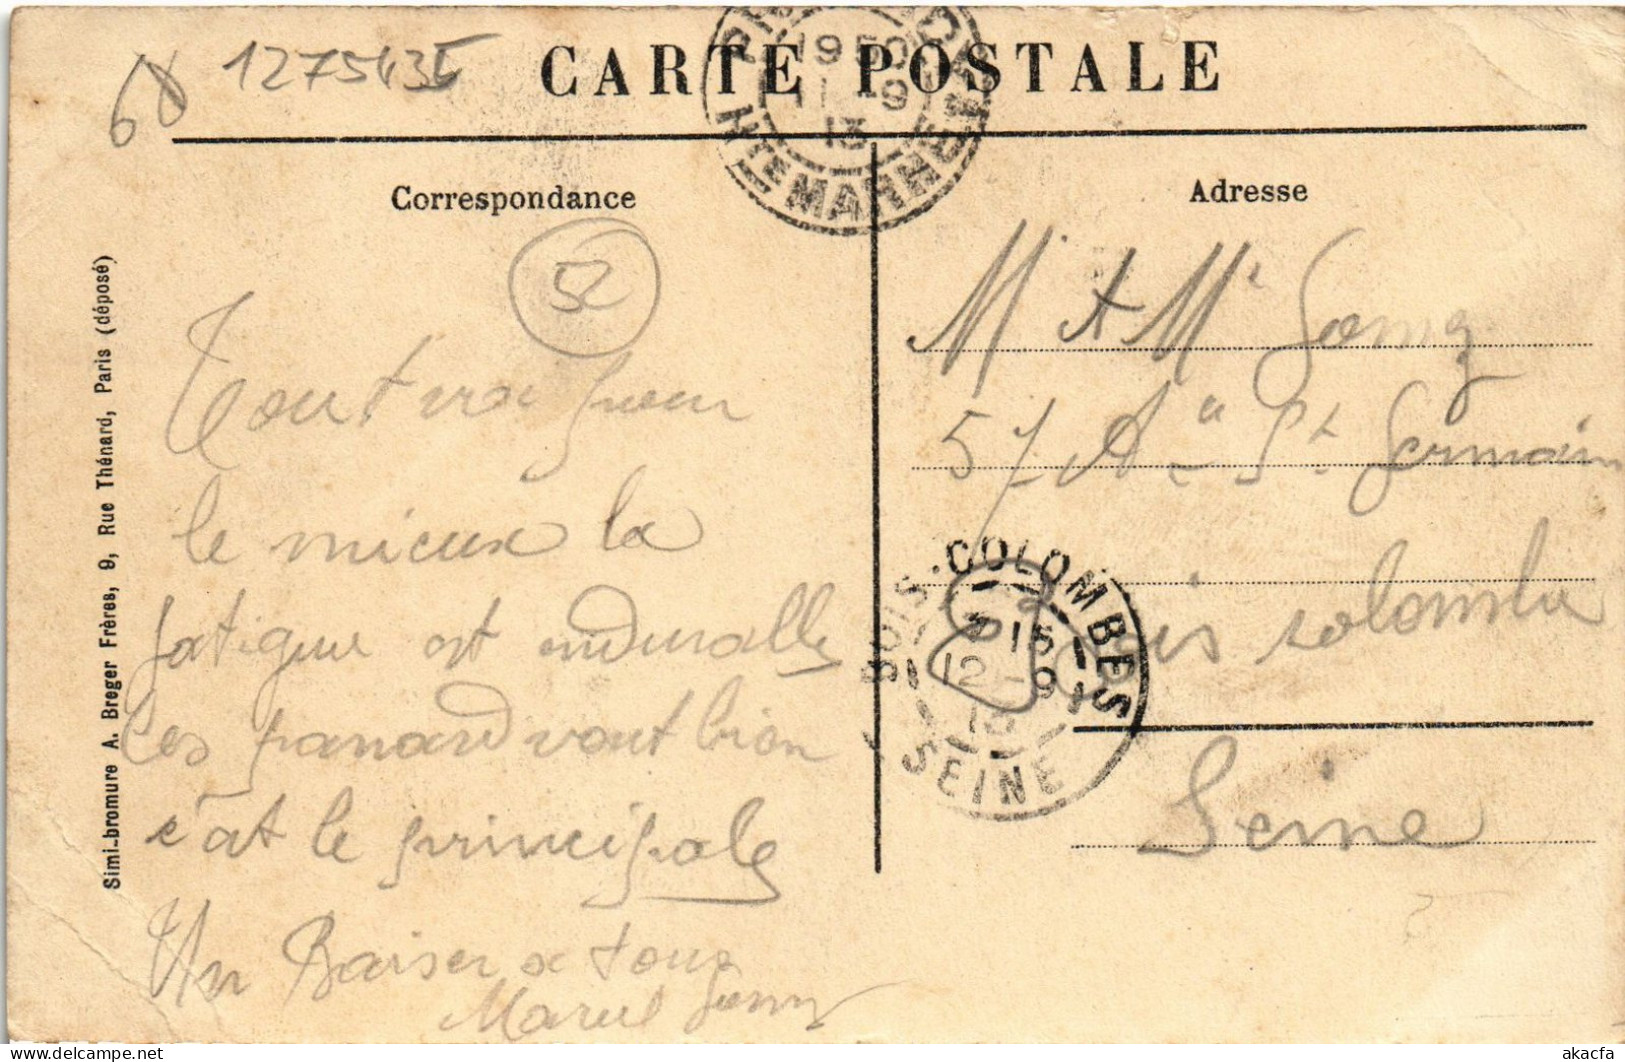 68 1275435
CARTE POSTALE
19 50
11 -9
13
Hte MARNE
Correspondance
Adresse
52
Simi-bromure A. Breger Frères, 9, Rue Thénard, Paris (déposé)
Tout va pour
le mieux la
fatigue est
les panard vont bien
c'at le principale
Un Baiser a tous
Marcel
M
57 St Germain
Bois colombe
Seine
BOIS-COLOMBES
15
12 -9
13
SEINE
akacfa